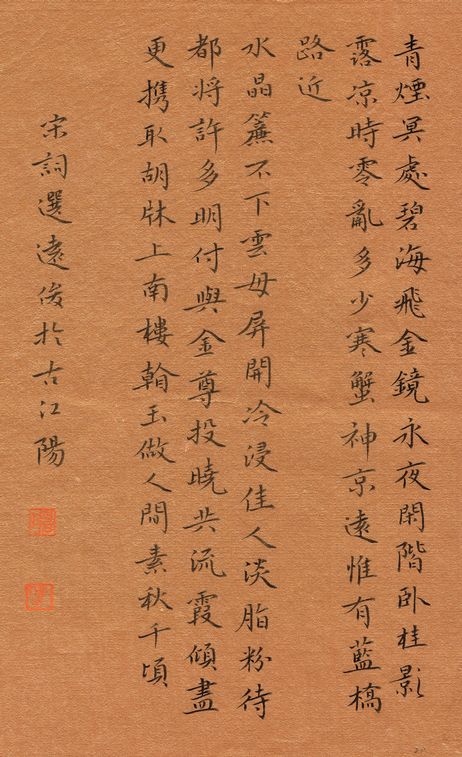 青煙冥處碧海飛金鏡永夜閑階卧桂影
露凉時零亂多少寒蟹神京遠惟有藍橋
路近
水晶簾不下雲母屏開冷浸佳人淡脂粉待
都將許多明付與金尊投曉共流霞傾盡
更携取胡牀上南樓翰玉做人間素秋千頃
宋詞選遠俊於古江陽